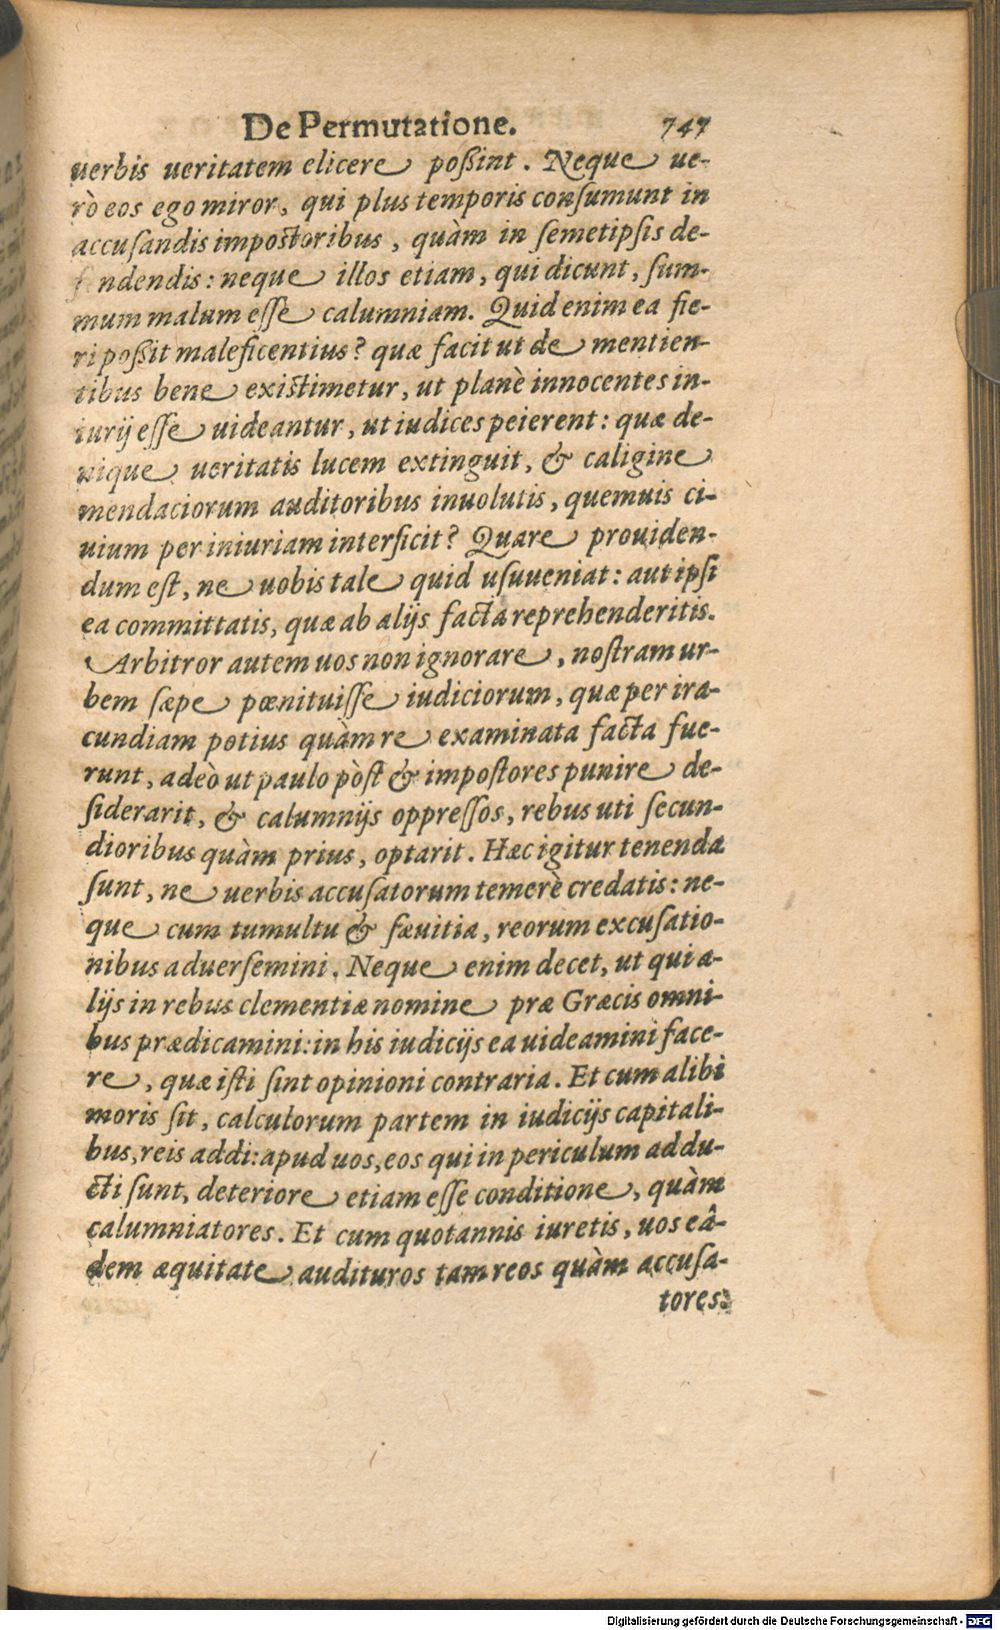 De Permutatione. 747
uerbis ueritatem elicere poßint. Neque ue-
rò eos ego miror, qui plus temporis conſumunt in
accuſandis impostoribus, quàm in ſemetipſis de-
ndendis: neque illos etiam, qui dicunt, ſum-
mum malum eſſe calumniam. Quid enim ea fie-
ri poßit maleficentius? quæ facit ut de mentien-
tibus bene existimetur, ut planè innocentes in-
iurij eſſe uideantur, ut iudices peierent: quæ de-
nique ueritatis lucem extinguit, & caligine
mendaciorum auditoribus inuolutis, quemuis ci-
uium per iniuriam interficit? Quare prouiden-
dum eſt, ne uobis tale quid uſuueniat: aut ipſi
ea committatis, quæ ab alijs facta reprehenderitis.
Arbitror autem uos non ignorare, noſtram ur-
bem ſæpe pœnituiſſe iudiciorum, quæ per ira-
cundiam potius quàm re examinata facta fue-
runt, adeò ut paulo pòſt & impoſtores punire de-
ſiderarit, & calumnijs oppreſſos, rebus uti ſecun-
dioribus quàm prius, optarit. Hæc igitur tenenda
ſunt, ne uerbis accuſatorum temerè credatis: ne-
que cum tumultu & ſæuitia, reorum excuſatio-
nibus aduerſemini. Neque enim decet, ut qui a-
lijs in rebus clementiæ nomine præ Græcis omni-
bus prædicamini: in his iudicijs ea uideamini face-
re, quæ iſti ſint opinioni contraria. Et cum alibi
moris ſit, calculorum partem in iudicijs capitali-
bus, reis addi: apud uos, eos qui in periculum addu-
cti ſunt, deteriore etiam eſſe conditione, quàm
calumniatores. Et cum quotannis iuretis, uos eâ-
dem æquitate audituros tam reos quàm accuſa-
tores:
Digitalisierung gefördert durch die Deutsche Forschungsgemeinschaft - DFG